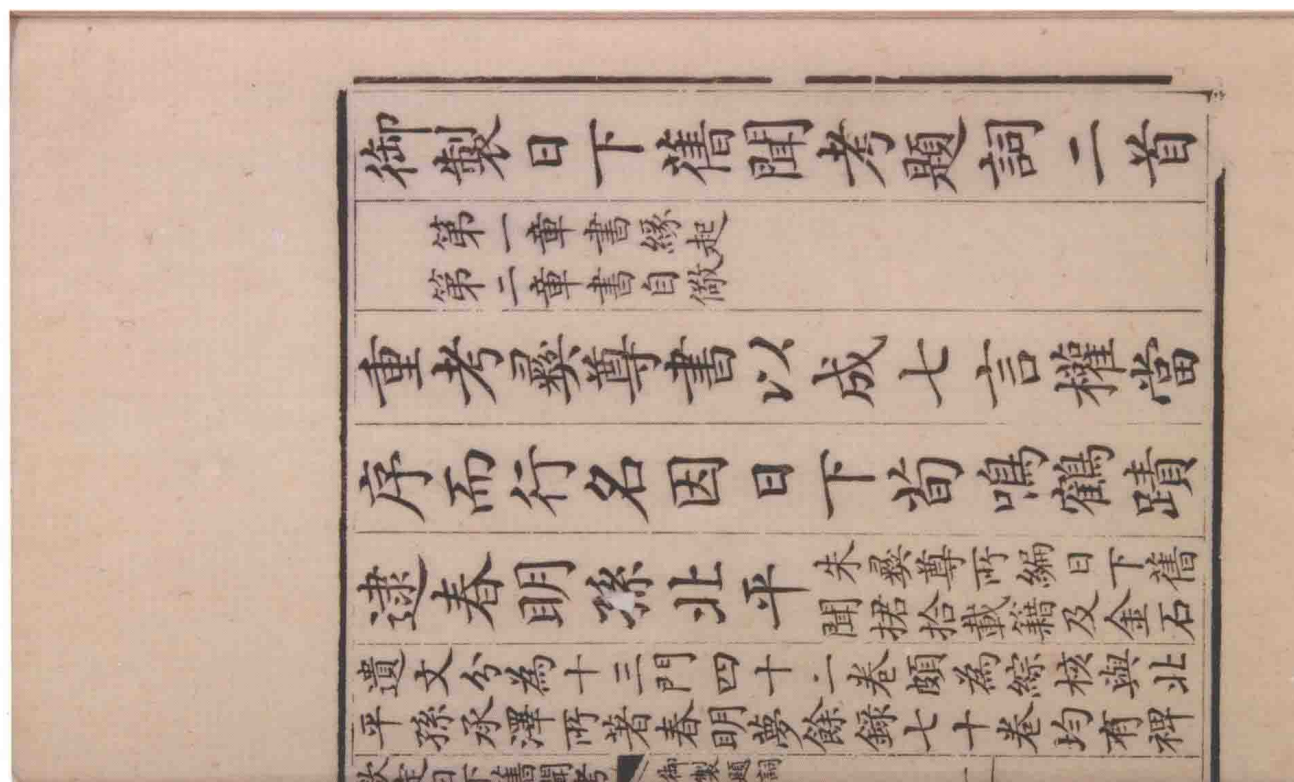 御製日下舊聞考題詞二首
第一章書緣起
第二章書自儆
重考彝尊書以成七言權當
序而行名因日下荀鳴鶴蹟
逮春明孫北平
朱彝尊所編日下舊
聞捃拾載籍及金石
遺文分為十三門四十二卷頗為綜核與北
平孫承澤所著春明夢餘錄七十卷均有裨
欽定日下舊聞考
御製題詞
一